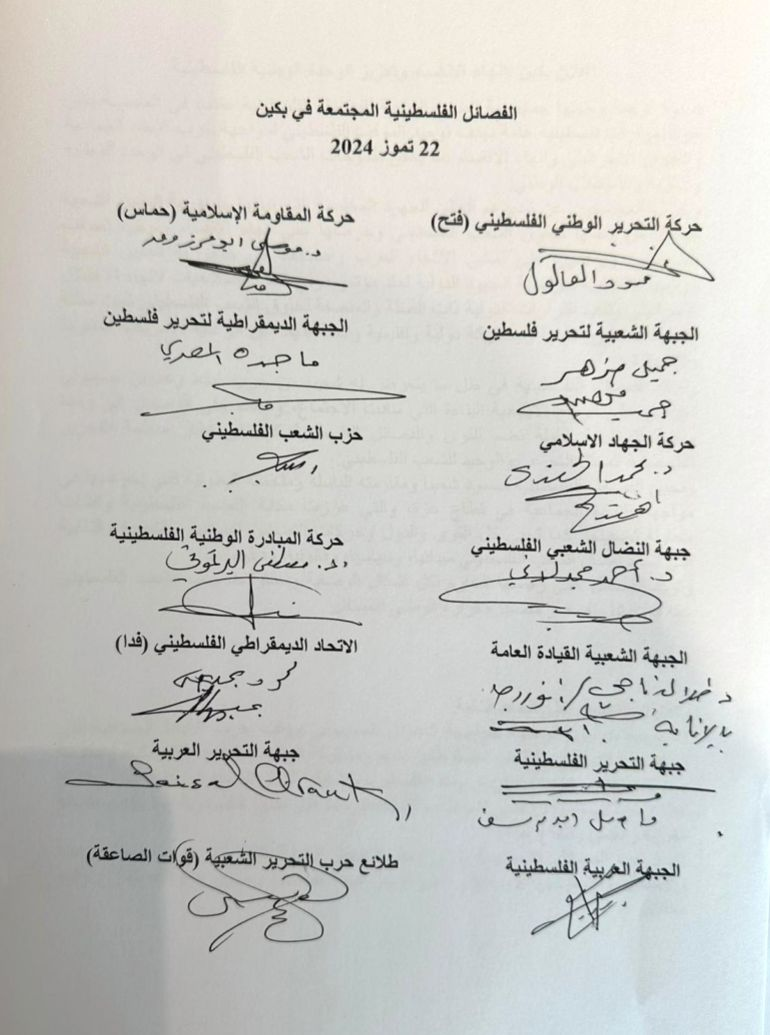 الفصائل الفلسطينية المجتمعة في بكين
22 تموز 2024
حركة التحرير الوطني الفلسطيني (فتح)
حركة المقاومة الإسلامية (حماس)
محمود العالول
د. موسى ابو مرزوق
الجبهة الشعبية لتحرير فلسطين
الجبهة الديمقراطية لتحرير فلسطين
جميل مزهر
ماجدة المصري
حركة الجهاد الاسلامي
حزب الشعب الفلسطيني
د. محمد الهندي
جبهة النضال الشعبي الفلسطيني
حركة المبادرة الوطنية الفلسطينية
د. أحمد مجدلاني
د. مصطفى البرغوثي
الجبهة الشعبية القيادة العامة
الاتحاد الديمقراطي الفلسطيني (فدا)
د. طلال ناجي / انور رجا
بالإنابة
جبهة التحرير الفلسطينية
جبهة التحرير العربية
Faisal
الجبهة العربية الفلسطينية
طلائع حرب التحرير الشعبية (قوات الصاعقة)